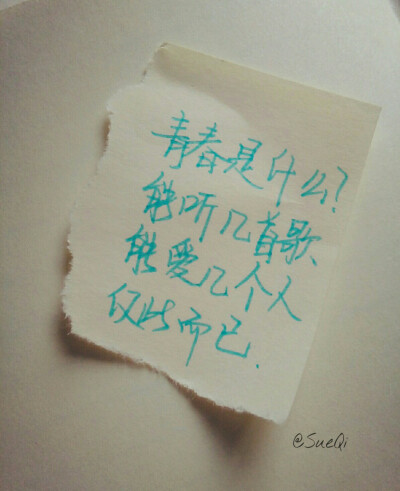 青春是什么?
能听几首歌、
能愛几个人
仅此而已.
@SueQi